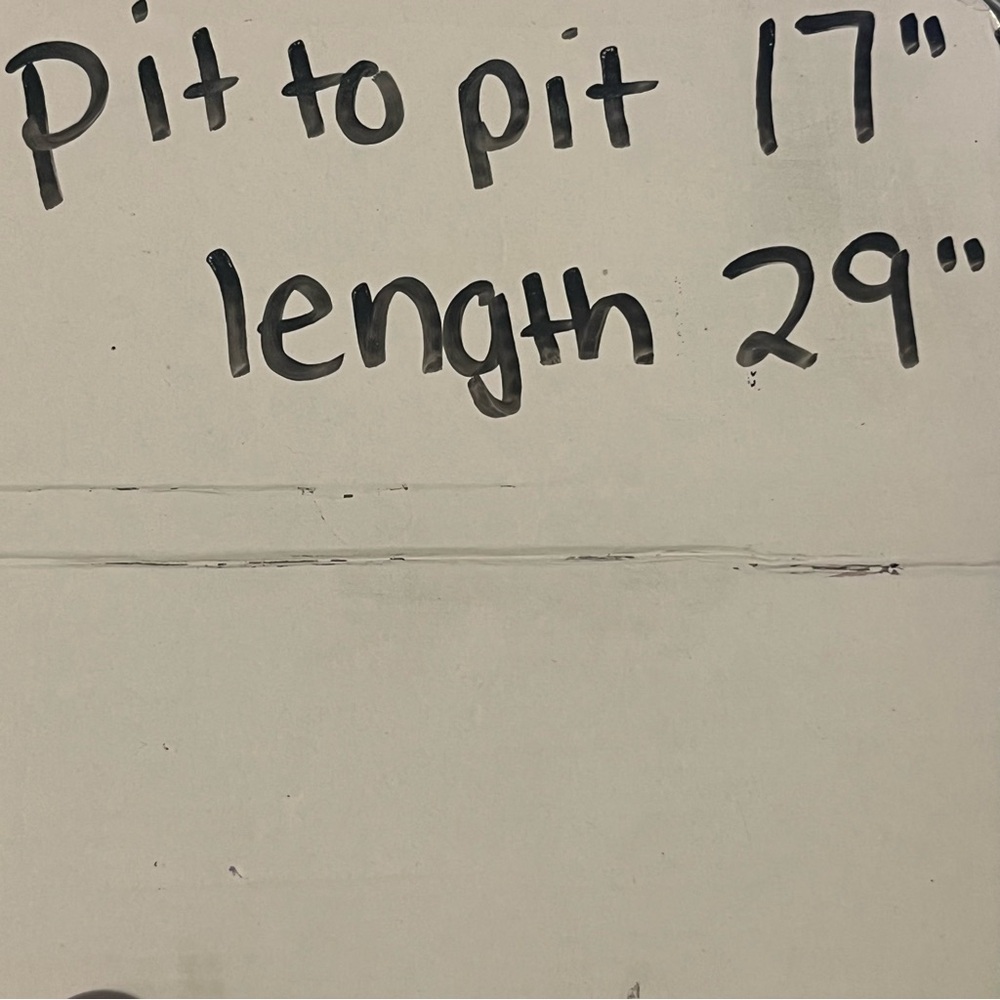 pit to pit 17"
length 29"